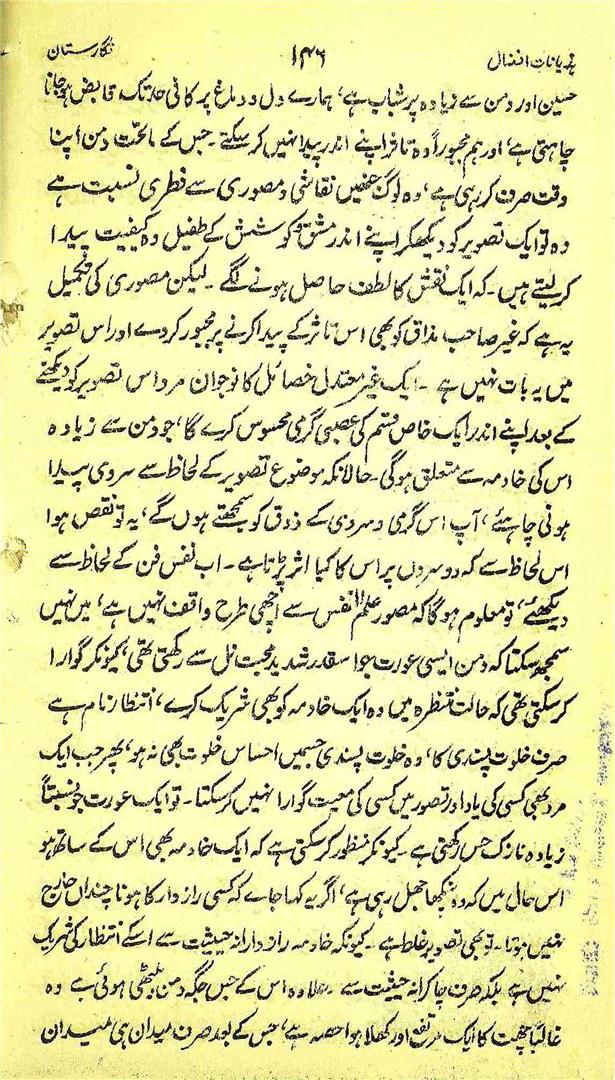 ہذیاناتِ انفعال ۱۴۶ نگارستان
حسین اور دمن سے زیادہ پر شباب ہے، ہمارے دل و دماغ پر کافی حد تک قابض ہوجانا
چاہتی ہے، اور ہم مجبوراً وہ تاثر اپنے اندر پیدا نہیں کرسکتے۔ جس کے ماتحت دمن اپنا
وقت صرف کر رہی ہے، وہ لوگ جنھیں نقاشی و مصوری سے فطری نسبت ہے
وہ تو ایک تصویر کو دیکھکر اپنے اندر مشق و کوشش کے طفیل وہ کیفیت پیدا
کر لیتے ہیں۔ کہ ایک نقش کا لطف حاصل ہونے لگے۔ لیکن مصوری کی تکمیل
یہ ہے کہ غیر صاحب مذاق کو بھی اس تاثر کے پیدا کرنے پر مجبور کردے اور اس تصویر
میں یہ بات نہیں ہے۔ ایک غیر معتدل خصائل کا نوجوان مرد اس تصویر کو دیکھنے
کے بعد اپنے اندر ایک خاص قسم کی عصبی گرمی محسوس کرے گا، جو دمن سے زیادہ
اس کی خادمہ سے متعلق ہوگی۔ حالانکہ موضوع تصویر کے لحاظ سے سردی پیدا
ہونی چاہئے، آپ اس گرمی و سردی کے ذوق کو سمجھتے ہوں گے، یہ تو نقص ہوا
اس لحاظ سے کہ دوسروں پر اس کا کیا اثر پڑتا ہے۔ اب نفس فن کے لحاظ سے
دیکھئے، تو معلوم ہوگا کہ مصور علم النفس سے اچھی طرح واقف نہیں ہے، میں نہیں
سمجھ سکتا کہ دمن ایسی عورت جو اسقدر شدید محبت نل سے رکھتی تھی، کیونکر گوارا
کرسکتی تھی کہ حالت منتظرہ میں وہ ایک خادمہ کو بھی شریک کرے، انتظار نام ہے
صرف خلوت پسندی کا، وہ خلوت پسندی جسمیں احساس خلوت بھی نہ ہو، پھر جب ایک
مرد بھی کسی کی یاد اور تصور میں کسی کی معیت گوارا نہیں کرسکتا۔ تو ایک عورت جو نسبتاً
زیادہ نازک حس رکھتی ہے۔ کیونکر منظور کرسکتی ہے کہ ایک خادمہ بھی اس کے ساتھ ہو
اس حال میں کہ وہ پنکھا جھل رہی ہے، اگر یہ کہا جائے کہ کسی رازدار کا ہونا چنداں حارج
نہیں ہوتا۔ تو بھی تصویر غلط ہے۔ کیونکہ خادمہ رازدارانہ حیثیت سے اسکے انتظار کی شریک
نہیں ہے بلکہ صرف چاکرانہ حیثیت سے۔ علاوہ اس کے جس جگہ دمن بیٹھی ہوئی ہے وہ
غالباً چھت کا ایک مرتفع اور کھلا ہوا حصہ ہے، جس کے بعد صرف میدان ہی میدان